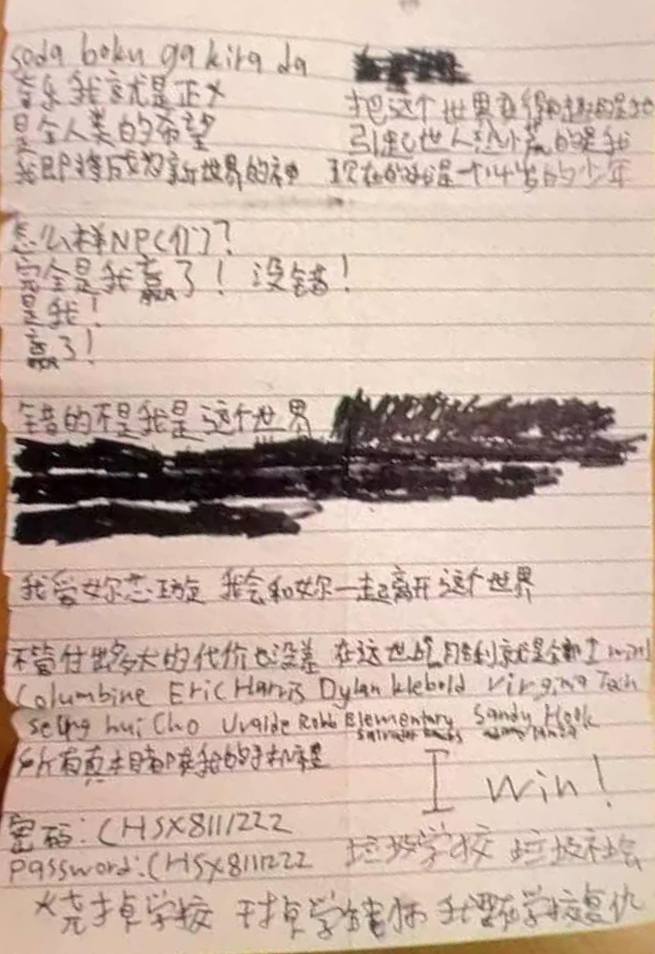 soda boku ga kira da
我就是正义
是全人类的希望
我即将成为新世界的神
把这个世界 的是我
引起世人 的是我
现在的 是一个14岁的少年
怎么样NPC们?
完全是我赢了!没错!
是我!
赢了!
错的不是我是这个世界
我爱妳 我会和妳一起离开这个世界
不管付出多大的代价也没差 在这世上胜利就是全部 I win!
Columbine Eric Harris Dylan klebold Virgina Tech
seung hui Cho Uvalde Robb Elementary Sandy Hook
所有真相都在我的手机裡
I win!
密码:CHSX8111222
password:CHSX8111222
垃圾学校 垃圾社会
烧掉学校 干掉学 我要在学校复仇